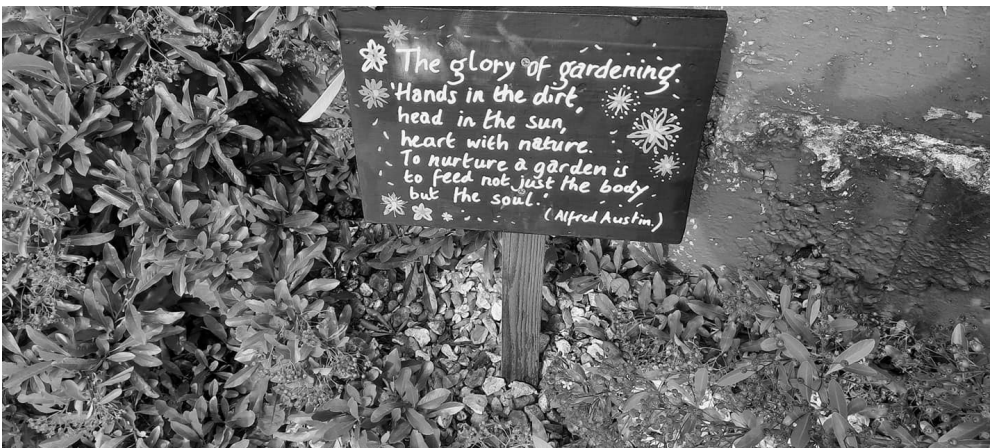 The glory of gardening.
'Hands in the dirt,
head in the sun,
heart with nature.
To nurture a garden is
to feed not just the body,
but the soul.'
(Alfred Austin.)